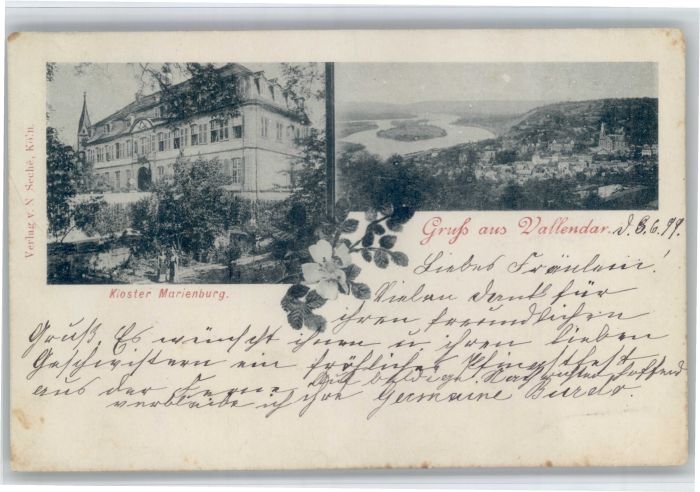 Verlag v. N Sechè, Kö'n.
Kloster Marienburg.
Gruß aus Vallendar. d. 8.6.99.
Liebes Fräulein!
Vielen Dank für
ihren freundlichen
Gruß. Es wünscht ihnen u ihren lieben
Geschwistern ein fröhliches Pfingstfest
aus der Ferne Auf baldige hoffend
verbleibe ich ihre Germaine